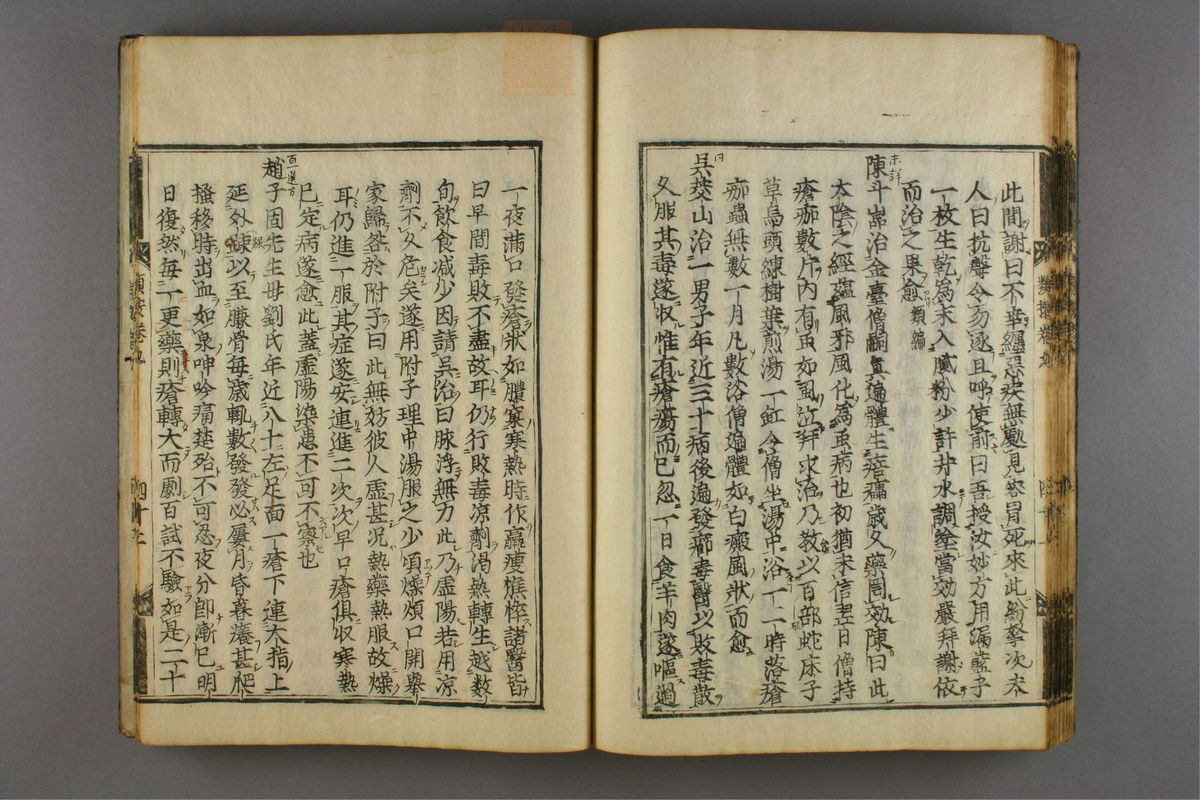 此間謝曰不幸纏惡疾無處見容冒死來此紛拏次未
人曰抗聲令勿逐且呼使前曰吾授汝妙方用漏藍子
一枚生乾為末入膩粉少許井水調塗當効嚴拜謝依
而治之果愈 類編
未詳
陳斗嵓治金臺僧海真遍體生瘡癘歲久藥罔效陳曰此
太陰之經蘊風邪風化為䖝病也初猶未信翌日僧持
瘡痂數片內有䖝如虱泣拜求治乃教以百部蛇床子
草烏頭練樹葉煎湯一缸令僧坐湯中浴一二時落瘡
痂蟲無數一月凡數浴僧遍體如白癜風狀而愈
吳茭山治一男子年近三十病後遍發癤毒醫以敗毒散
久服其毒遂收惟有瘡瘍而已忽一日食羊肉遂嘔過
一夜滿口發瘡狀如膿窠寒熱時作羸瘦憔悴諸醫皆
曰早間毒敗不盡故耳仍行敗毒凉劑渴熱轉生越數
旬飲食減少因請吳治曰脉浮無力此乃虛陽若用凉
劑不久危矣遂用附子理中湯服之少頃燥煩口開舉
家歸咎於附子曰此無妨彼久虛甚况熱藥熱服故燥
耳仍進一服其症遂安連進二次次早口瘡俱收寒熱
已定病遂愈此蓋虛陽染患不可不察也
百一選方
趙子固先生母劉氏年近八十左足面一瘡下連大指上
延外以至臁骨每歲輒數發發必屢月昏暮癢甚爬
搔移時出血如泉呻吟痛楚殆不可忍夜分即漸已明
日復然每一更藥則瘡轉大而劇百試不驗如是二十